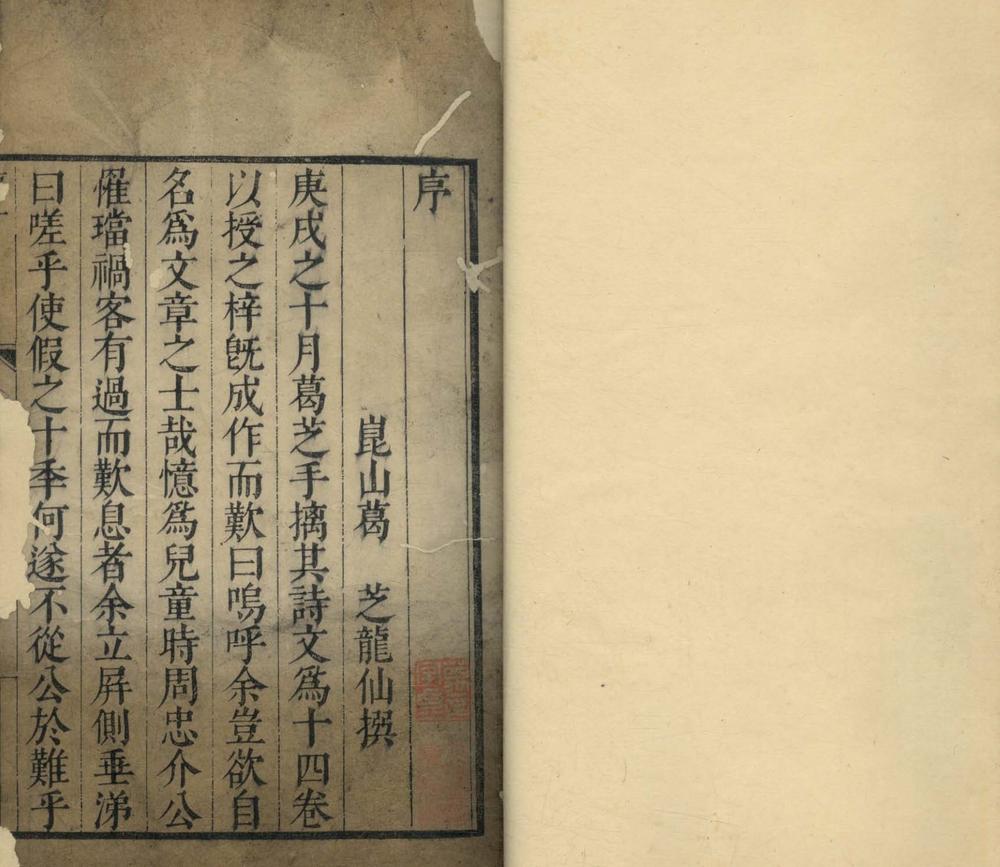 序
崑山葛 芝龍仙撰
庚戌之十月葛芝手摛其詩文爲十四卷
以授之梓旣成作而歎曰嗚呼余豈欲自
名爲文章之士哉憶爲兒童時周忠介公
罹璫禍客有過而歎息者余立屛側垂涕
曰嗟乎使假之十季何遂不從公於難乎